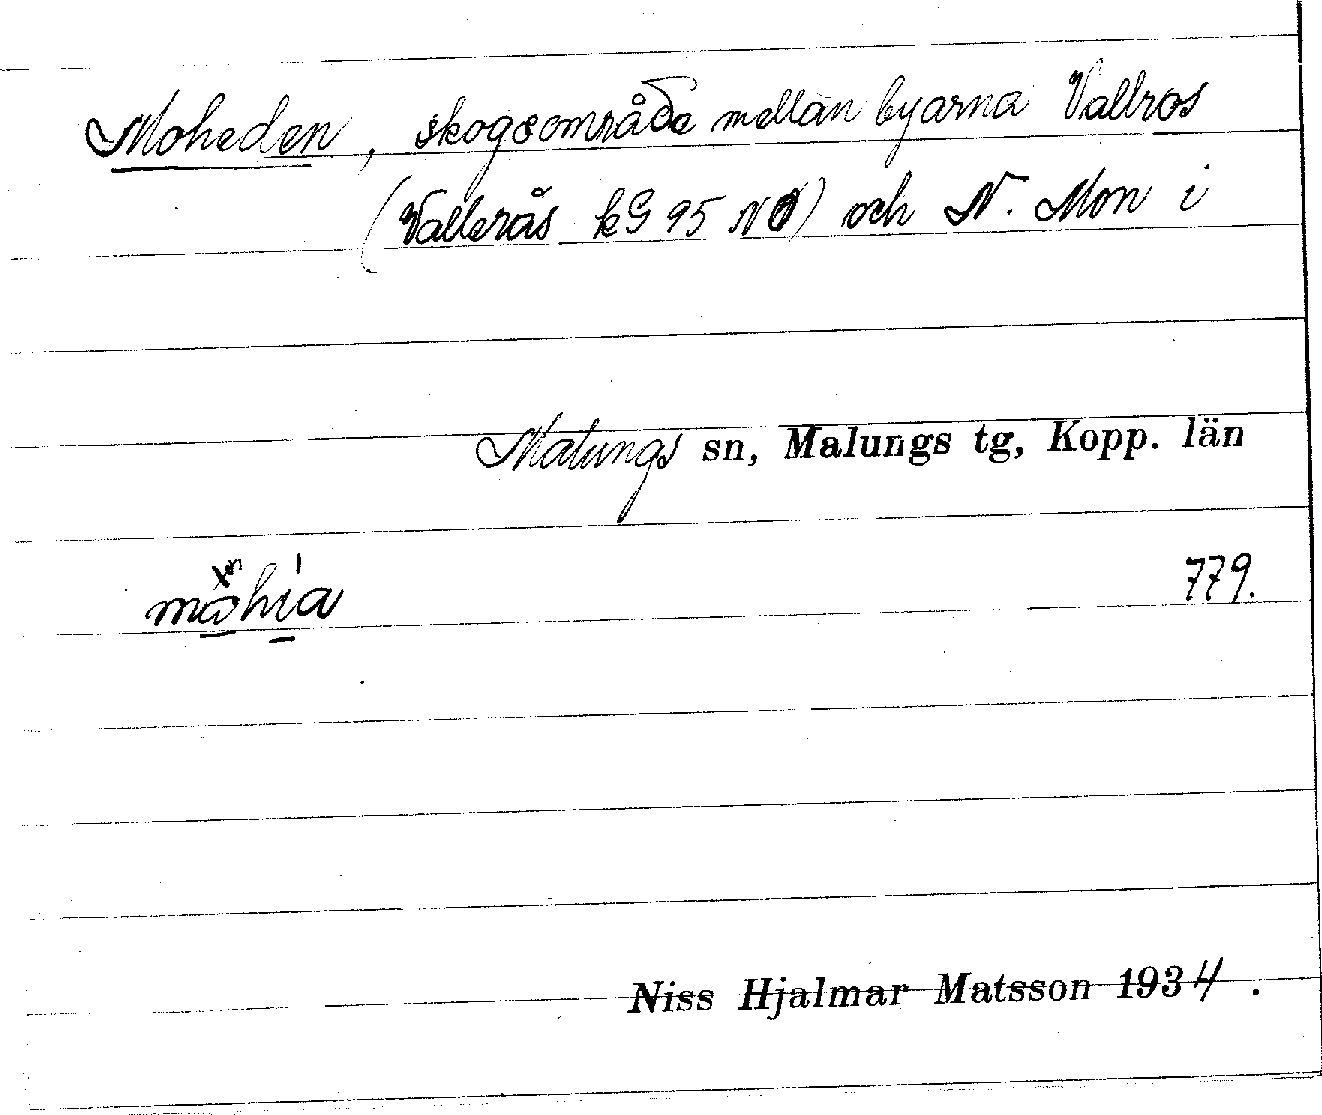 Moheden, skogsområde mellan byarna Vallros
(Vallerås kG 95 NO) och N. Mon i
Malungs sn, Malungs tg, Kopp. län
779.
Niss Hjalmar Matsson 1934.